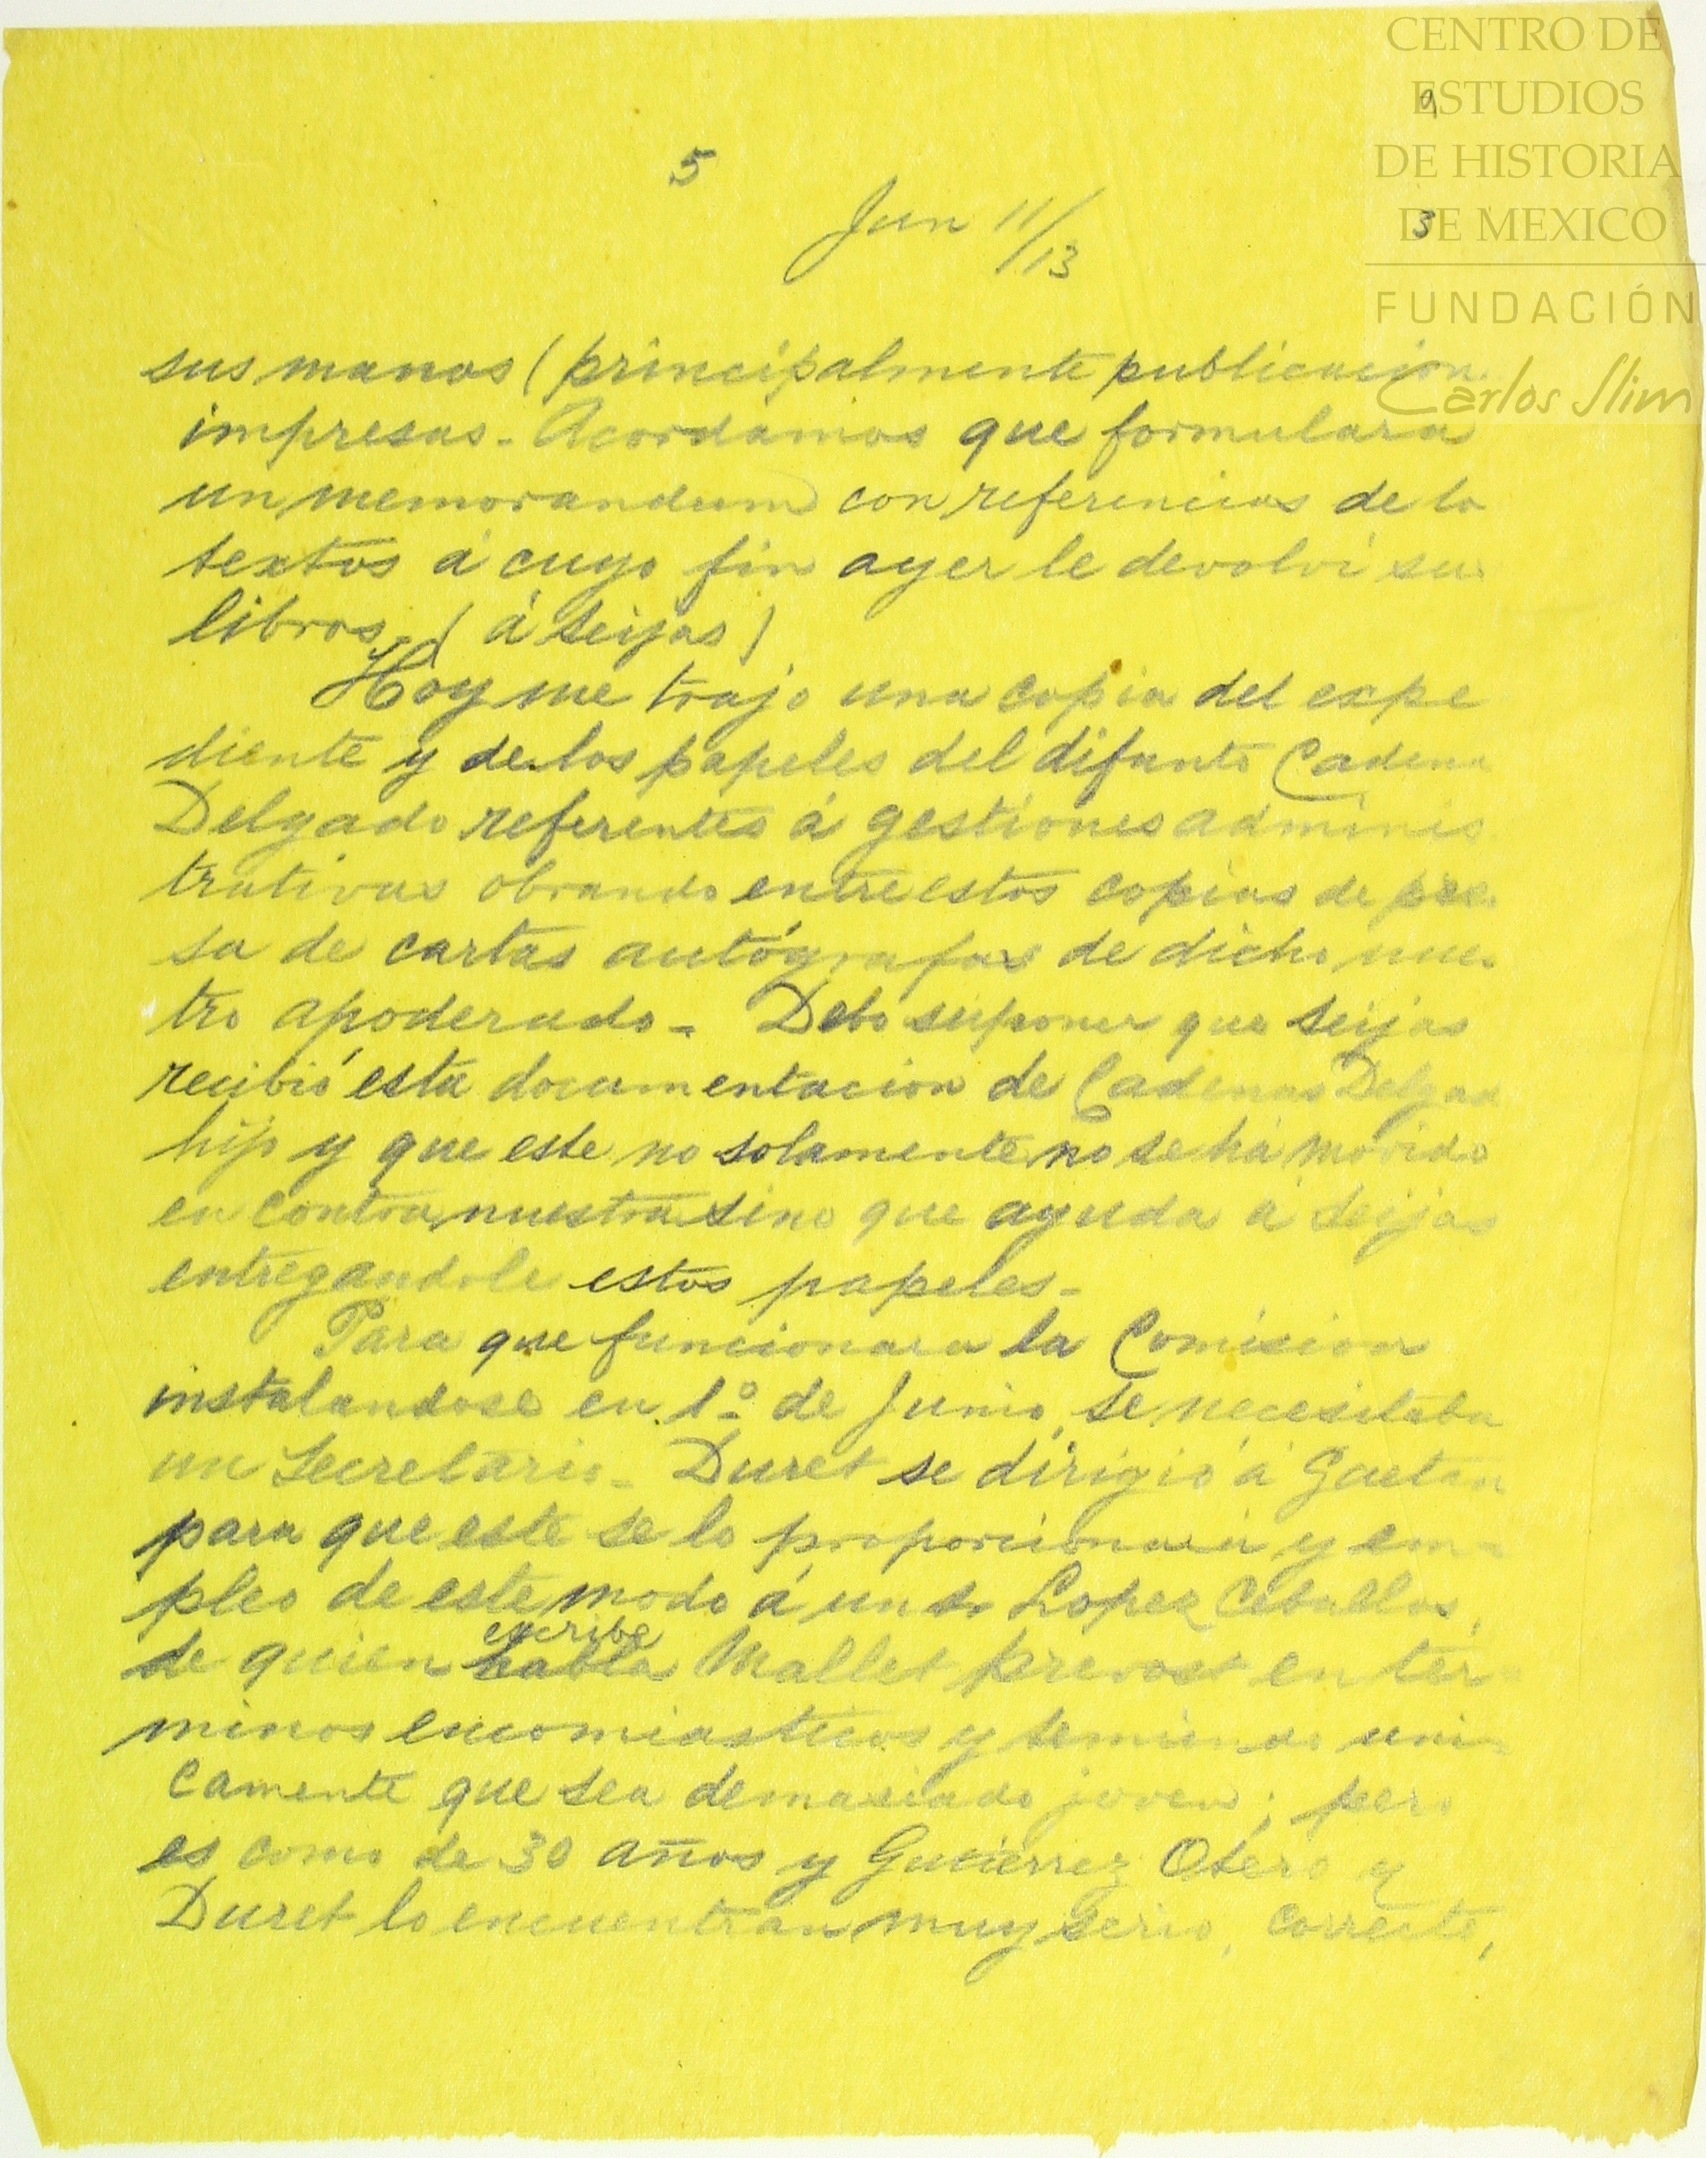 CENTRO DE
ESTUDIOS
DE HISTORIA
DE MEXICO
FUNDACIÓN
Carlos Slim
9
3
5
Jun 11/13
sus manos (principalmente publicacion
impresas - Acordamos que formulara
un memorandum con referencias de lo
textos á cuyo fin ayer le devolví sus
libros. (á Seijas)
Hoy me trajo una copia del expe
diente y de los papeles del difunto Cadena
Delgado referentes á gestiones adminis
trativas obrando entre estos copias de pren
sa de cartas autógrafas de dicho nues
tro apoderado - Debo suponer que Seijas
recibió esta documentacion de Cadenas Delgad
hijo y que este no solamente no se há movido
en contra nuestra sino que ayuda á Seijas
entregandole estos papeles -
Para que funcionara la Comision
instalandose en 1º de Junio, se necesitaba
un Secretario - Duret se dirigió á Gaetan
para que este se lo proporcionara y em-
pleo de este modo á un Sr Lopez Ceballos,
de quien habla escribe Mallet prevost en tér
minos encomiasticos y temiendo uni
camente que sea demasiado joven; pero
es como de 30 años y Gutiérrez Otero y
Duret lo encuentran muy serio, correcto,